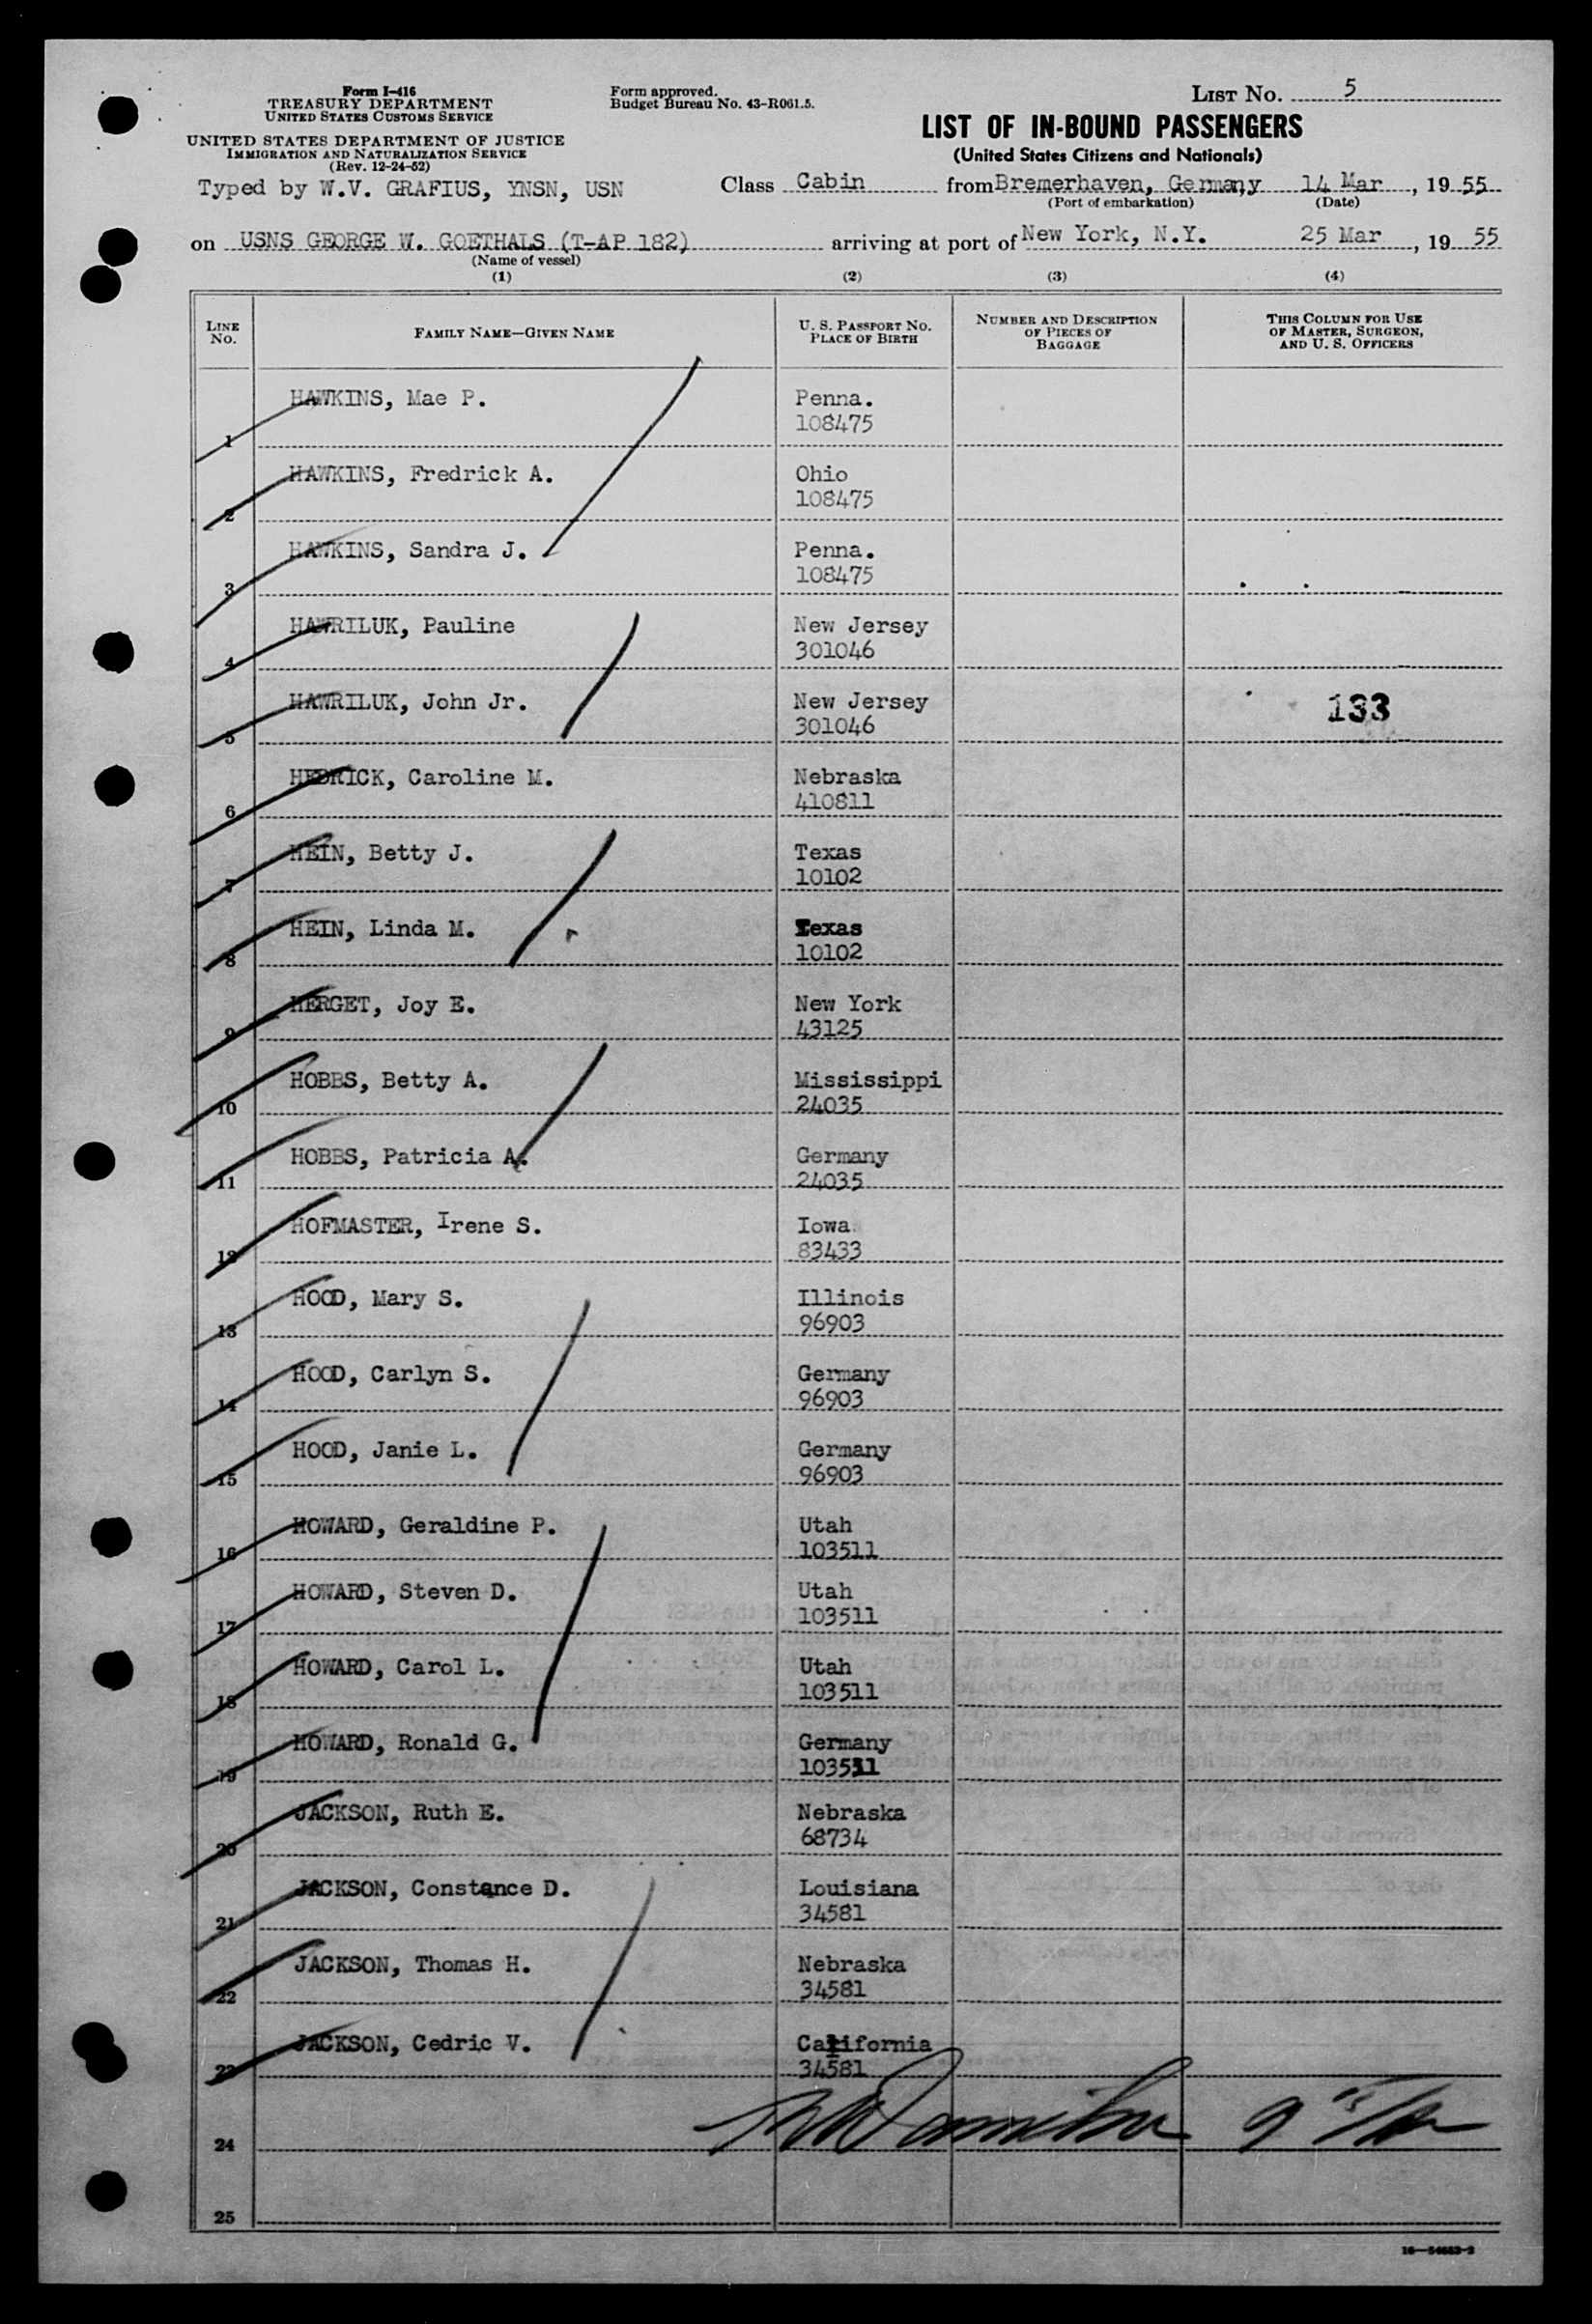 Form I-416
TREASURY DEPARTMENT
UNITED STATES CUSTOMS SERVICE
UNITED STATES DEPARTMENT OF JUSTICE
IMMIGRATION AND NATURALIZATION SERVICE
(Rev. 12-24-52)
Typed by W.V. GRAFIUS, YNSN, USN
Form approved.
Budget Bureau No. 43-R061.5.
LIST NO. 5
LIST OF IN-BOUND PASSENGERS
(United States Citizens and Nationals)
Class Cabin from Bremerhaven, Germany 14 Mar, 19 55
(Port of embarkation) (Date)
on USNS GEORGE W. GOETHALS (T-AP 182) arriving at port of New York, N.Y. 25 Mar, 19 55
(Name of vessel)
(1) (2) (3) (4)
LINE NO.
FAMILY NAME—GIVEN NAME
U. S. PASSPORT NO.
PLACE OF BIRTH
NUMBER AND DESCRIPTION
OF PIECES OF
BAGGAGE
THIS COLUMN FOR USE
OF MASTER, SURGEON,
AND U. S. OFFICERS
1 HAWKINS, Mae P. Penna.
108475
2 HAWKINS, Fredrick A. Ohio
108475
3 HAWKINS, Sandra J. Penna.
108475
4 HAWRILUK, Pauline New Jersey
301046
5 HAWRILUK, John Jr. New Jersey
301046
133
6 HEDRICK, Caroline M. Nebraska
410811
7 HEIN, Betty J. Texas
10102
8 HEIN, Linda M. Texas
10102
9 HERGET, Joy E. New York
43125
10 HOBBS, Betty A. Mississippi
24035
11 HOBBS, Patricia A. Germany
24035
12 HOFMASTER, Irene S. Iowa
83433
13 HOOD, Mary S. Illinois
96903
14 HOOD, Carlyn S. Germany
96903
15 HOOD, Janie L. Germany
96903
16 HOWARD, Geraldine P. Utah
103511
17 HOWARD, Steven D. Utah
103511
18 HOWARD, Carol L. Utah
103511
19 HOWARD, Ronald G. Germany
103511
20 JACKSON, Ruth E. Nebraska
68734
21 JACKSON, Constance D. Louisiana
34581
22 JACKSON, Thomas H. Nebraska
34581
23 JACKSON, Cedric V. California
34581
24
25